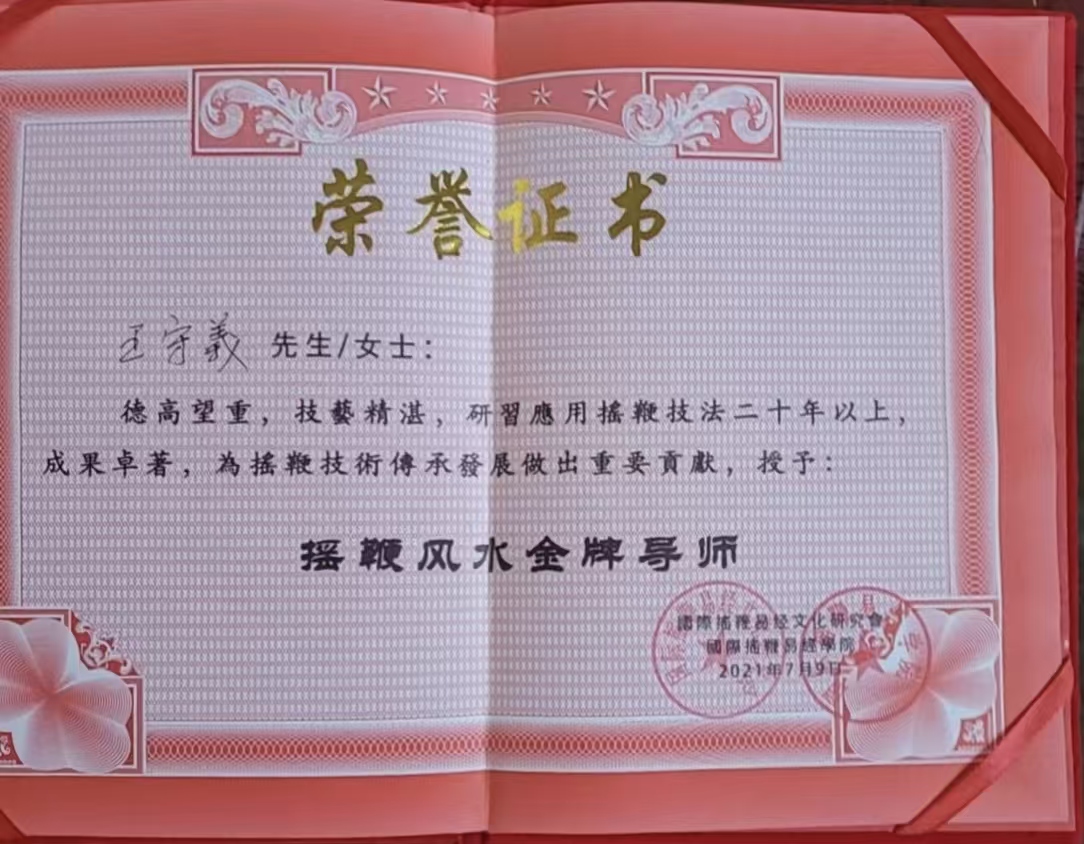 荣誉证书
王守義 先生/女士：
德高望重，技藝精湛，研習應用搖鞭技法二十年以上，
成果卓著，為搖鞭技術傳承發展做出重要貢獻，授予：
摇鞭风水金牌导师
國際搖鞭易经文化研究會
國際搖鞭易經學院
2021年7月9日